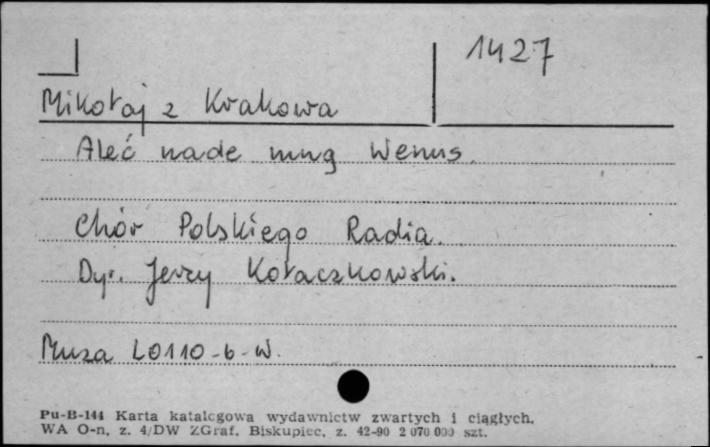 1427
Mikołaj z Krakowa
Aleć nade mną Wenus.
Chór Polskiego Radia.
Dyr. Jerzy Kołaczkowski.
Muza L0110-b-W.
Pu-B-144 Karta katalogowa wydawnictw zwartych i ciągłych.
WA O-n, z. 4/DW ZGraf. Biskupiec, z. 42-90 2 070 000 szt.